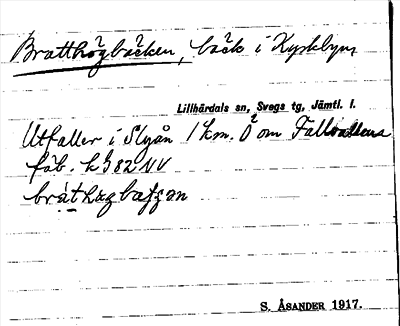 Bratthögbäcken, bäck i Kyrkbyn
Lillhärdals sn, Svegs tg, Jämtl. l.
Utfaller i Slyån 1 km. Ö om Fallvallens
fäb. kb 82 NV
S. ÅSANDER 1917.